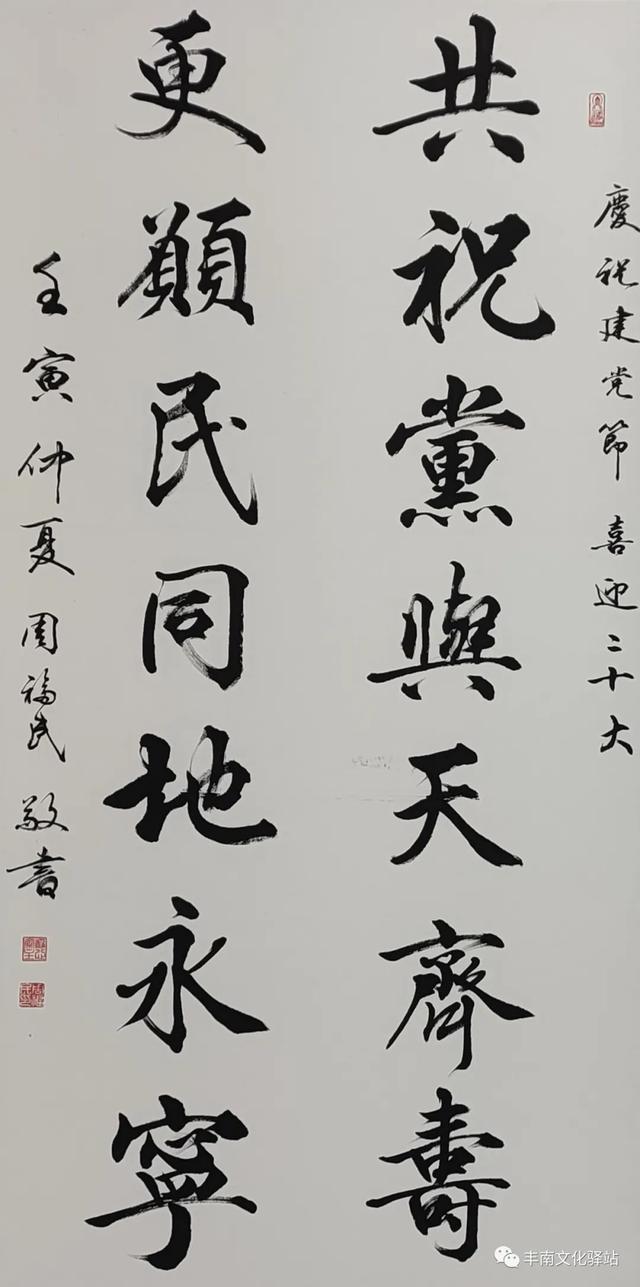 慶祝建党節喜迎二十大
共祝黨與天齊壽
更願民同地永寧
壬寅仲夏周福民敬書
丰南文化驿站